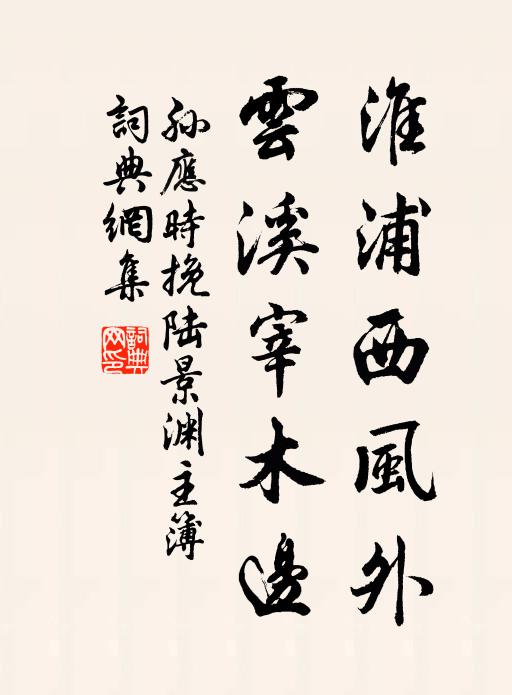 淮浦西風外
雲溪宰木邊
孙應時挽陆景渊主簿
詞典網集
詞典網印